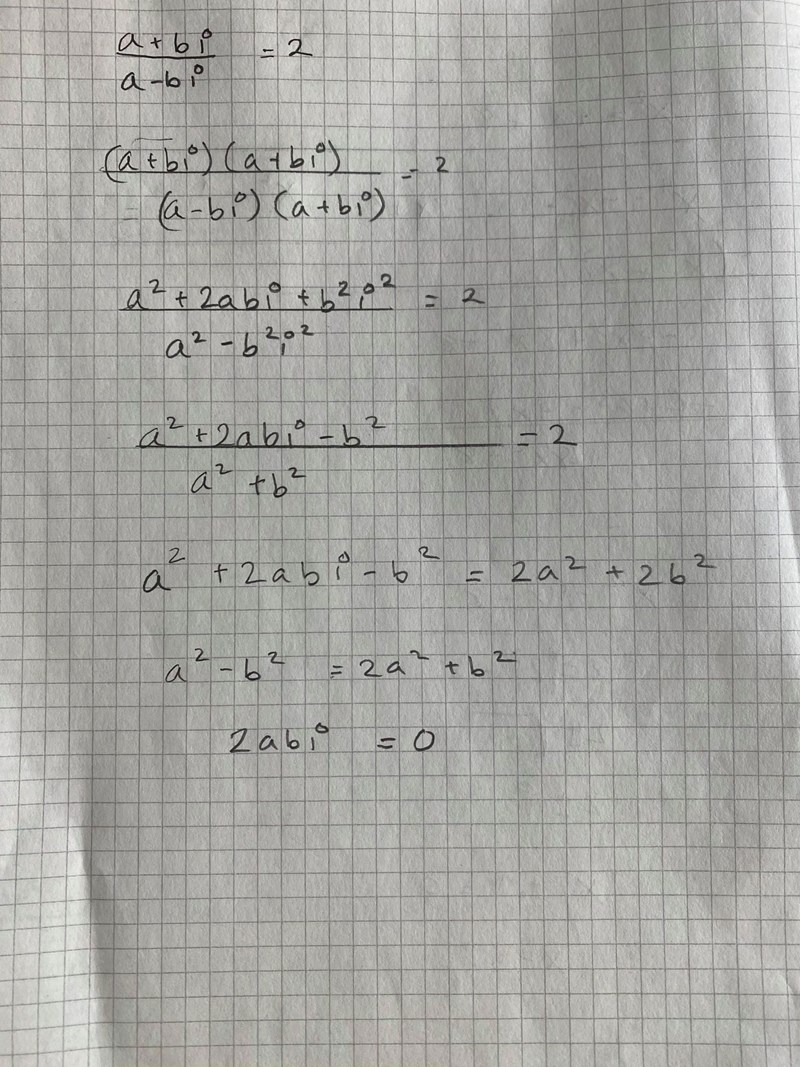 a + bi
a - bi
= 2
(a + bi) (a + bi)
= (a - bi) (a + bi)
= 2
a² + 2abi + b²i²
a² - b²i²
= 2
a² + 2abi - b²
a² + b²
= 2
a² + 2abi - b² = 2a² + 2b²
a² - b² = 2a² + b²
2abi = 0